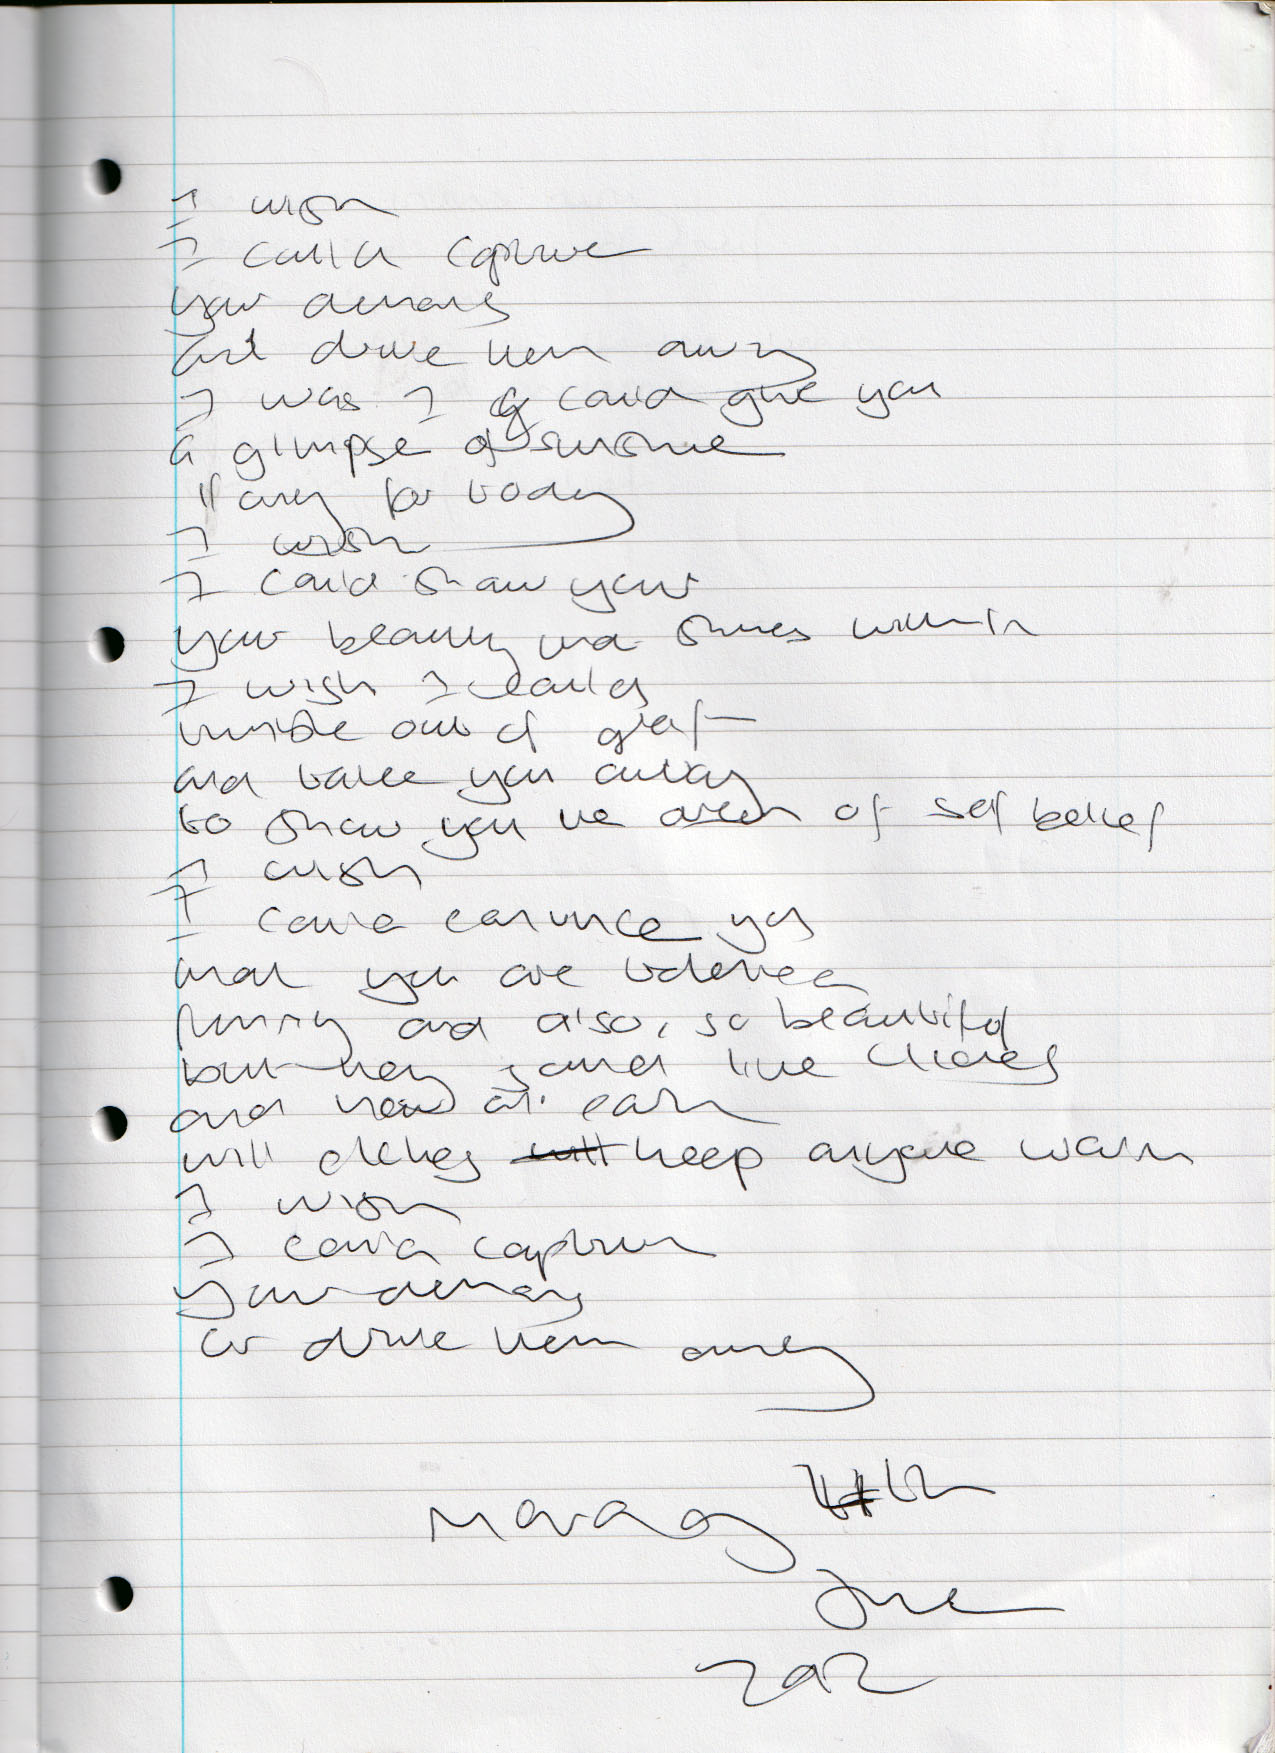 I wish
I could capture
your demons
and drive them away
I was I could give you
a glimpse of sunshine
if only for today
I wish
I could show you
your beauty that shines within
I wish I could
out of
and take you away
to show you the of self belief
I wish
I could convince you
that you are talented
funny and also, so beautiful
but they sound like cliches
and
will cliches keep anyone warm
I wish
I could capture
your demons
or drive them away
Monday
June